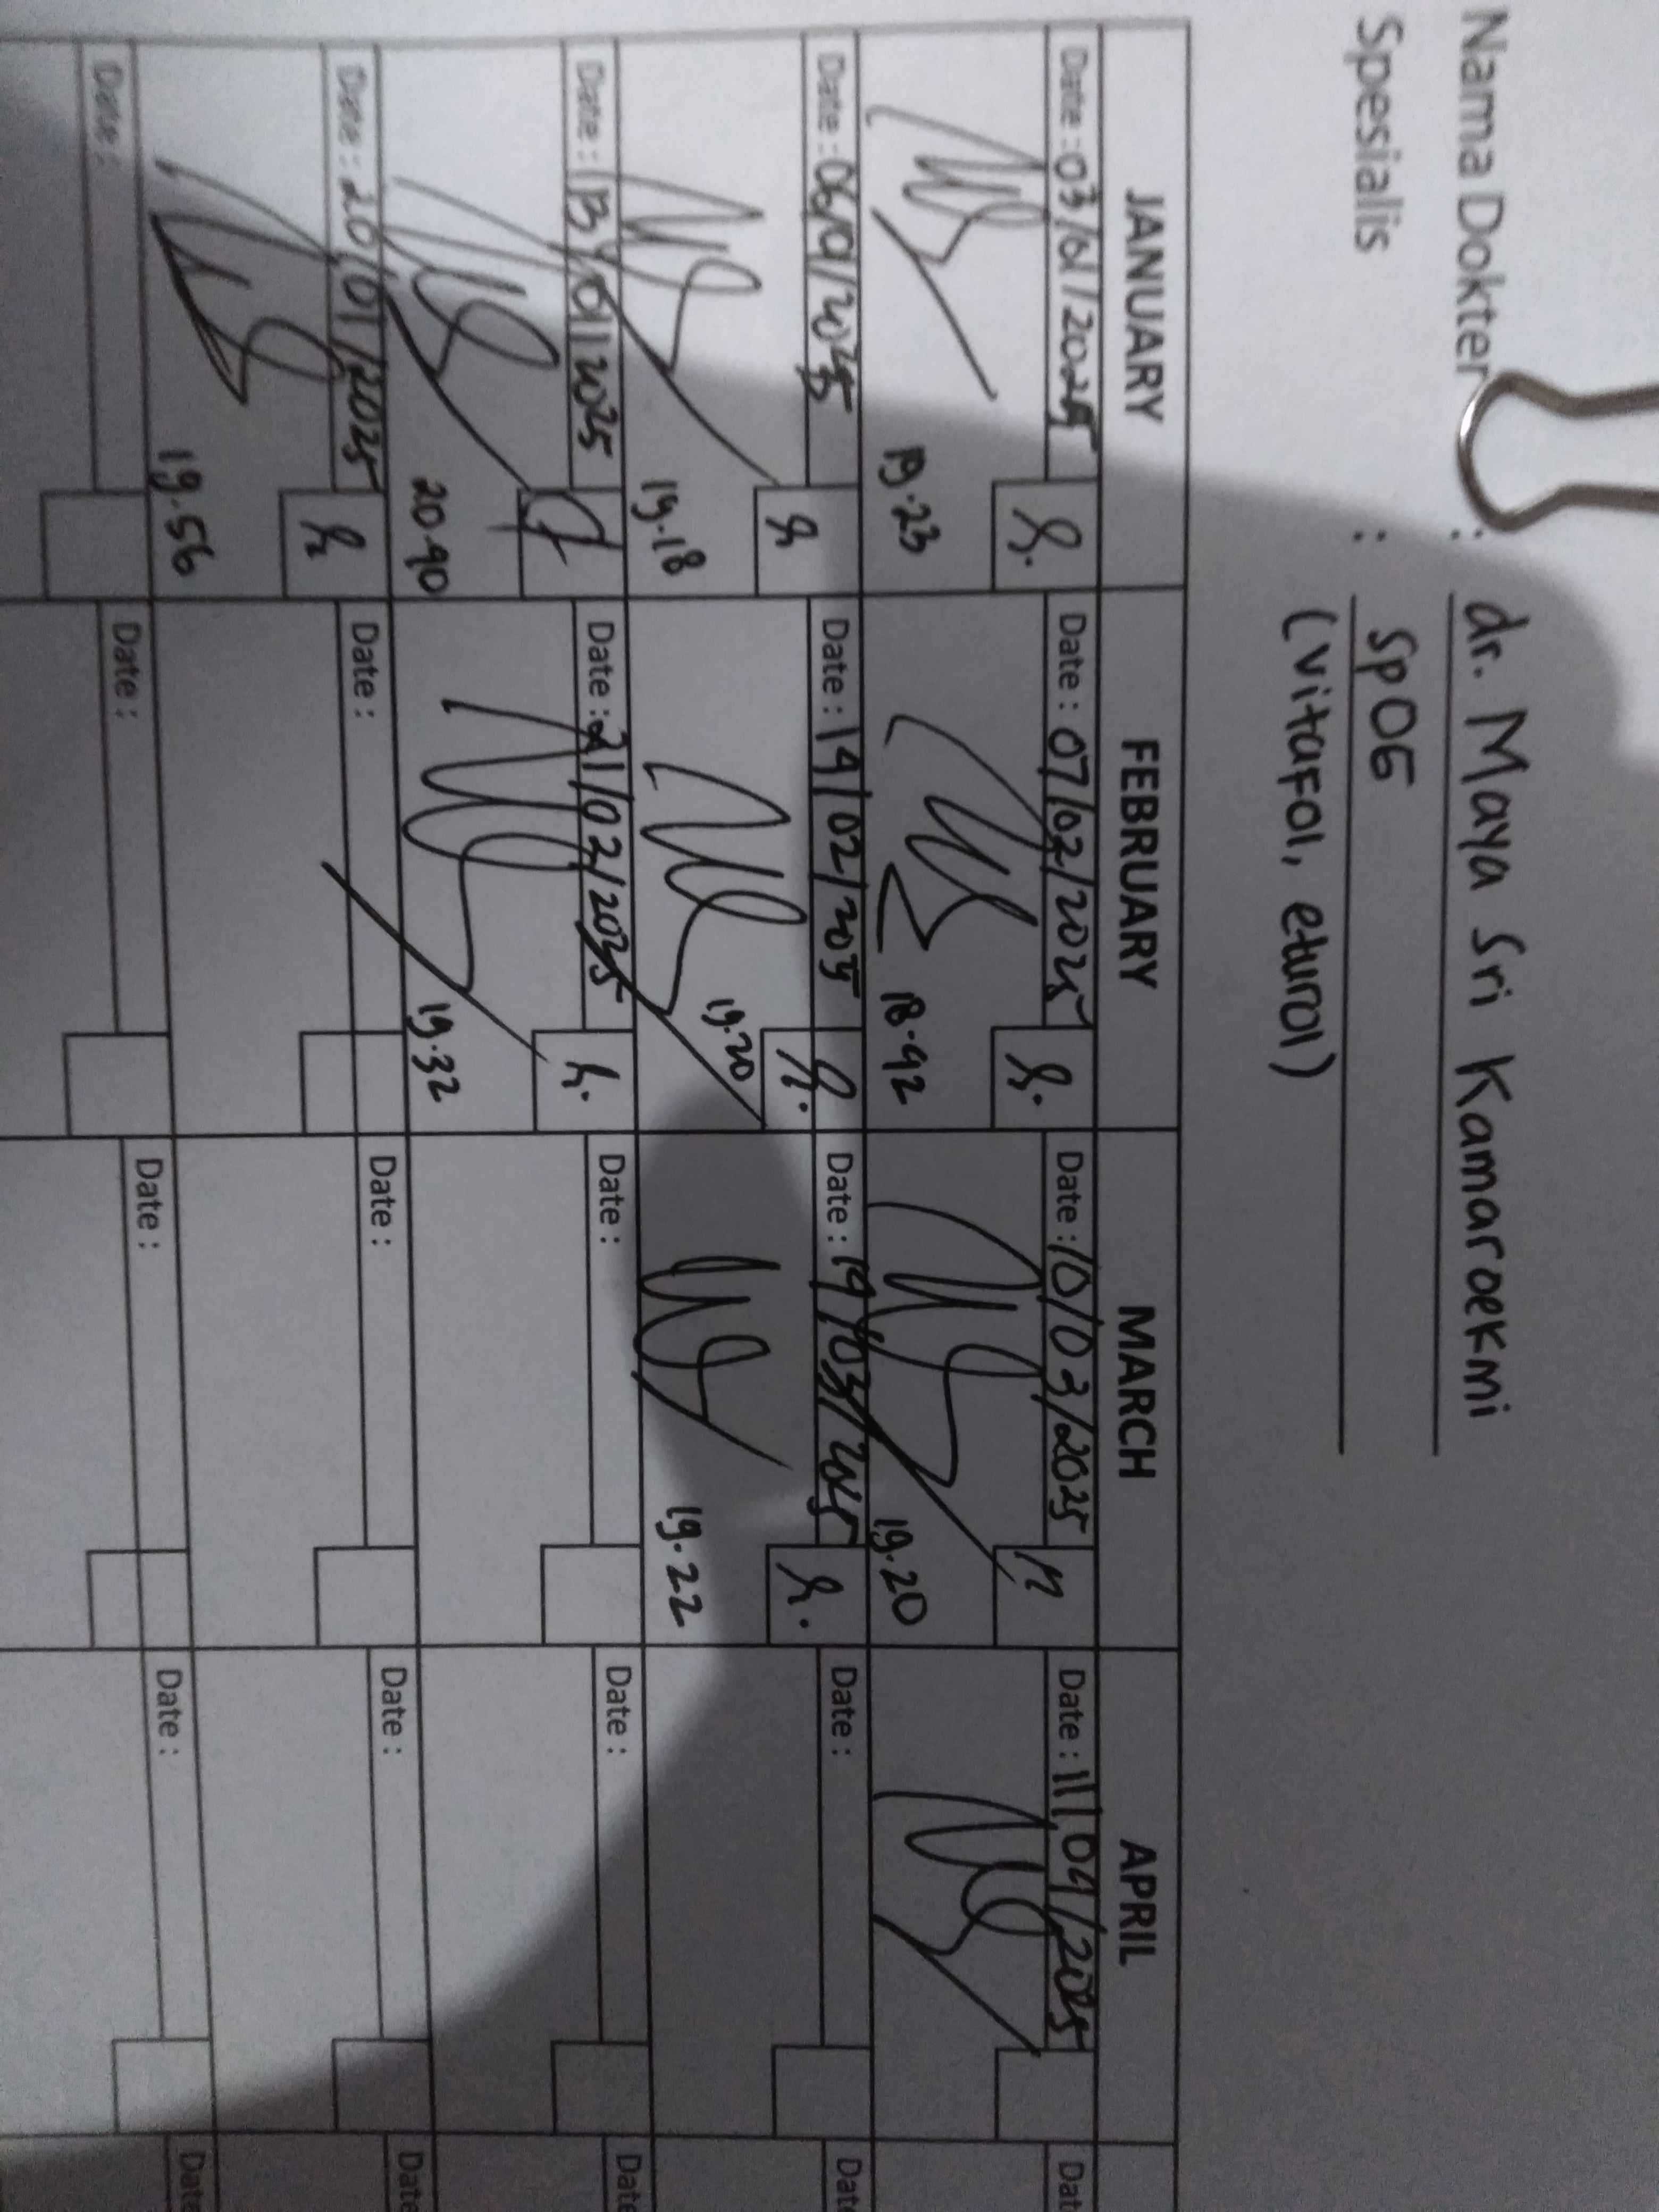 Nama Dokter : dr. Maya Sri Kamaroekmi
Spesialis : SpOG
(vitafol, eturol)
JANUARY FEBRUARY MARCH APRIL
Date : 03/01/2025 Date : 07/02/2025 Date : 10/03/2025 Date : 11/04/2025 Dat
19.23 18.42 19.20
Date : 06/01/2025 Date : 14/02/2025 Date : 14/03/2025 Date : Dat
19.18 19.20 19.22
Date : 13/01/2025 Date : 21/02/2025 Date : Date : Date
20.40 19.32
Date : 20/01/2025 Date : Date : Date : Date
19.56
Date : Date : Date : Date : Date